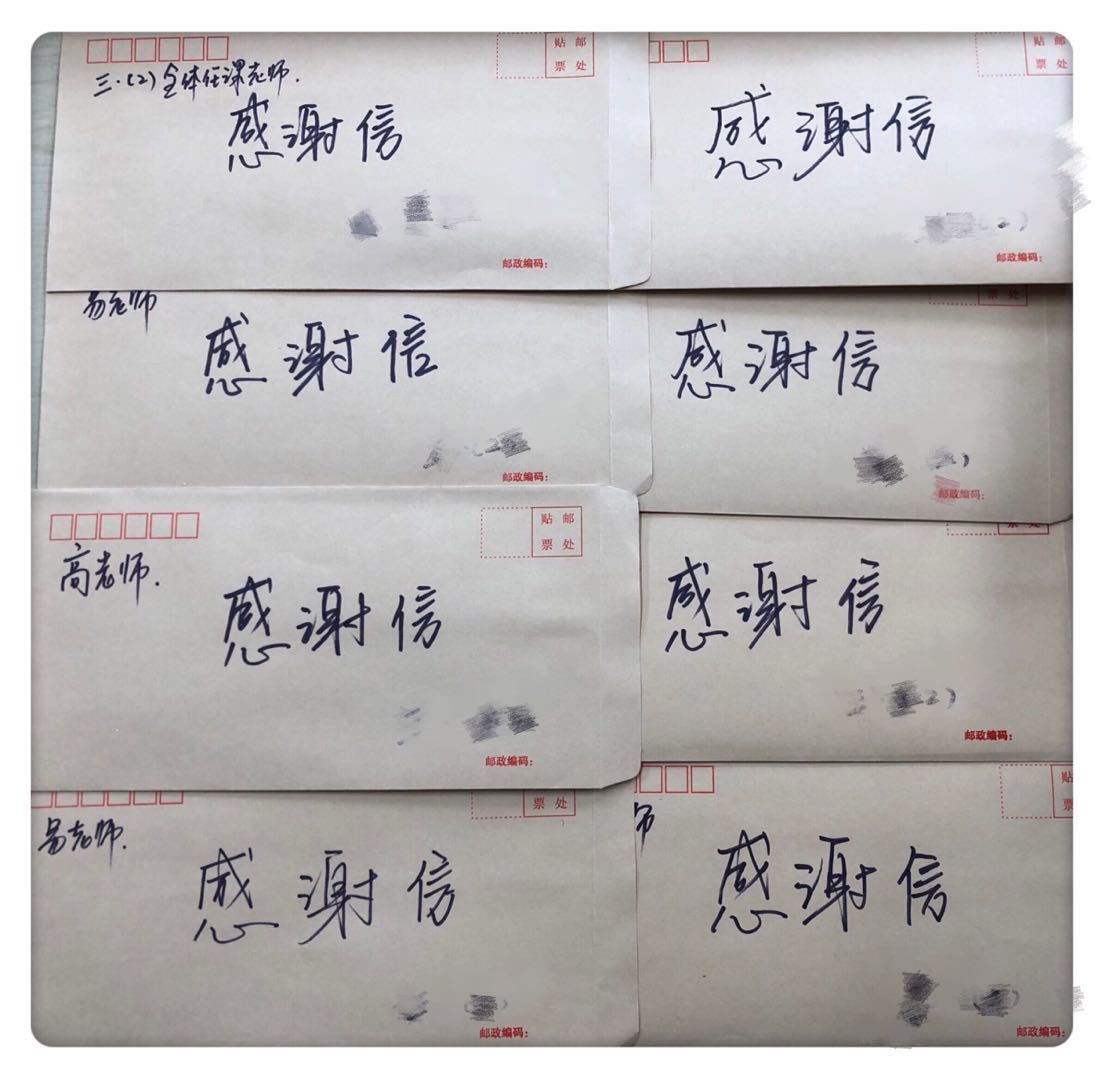 贴 邮
票 处
三.(2)全体任课老师.
感谢信
邮政编码:
贴 邮
票 处
感谢信
2)
邮政编码:
易老师
感谢信
邮政编码:
票 处
感谢信
邮政编码:
贴 邮
票 处
高老师.
感谢信
邮政编码:
票 处
感谢信
2)
邮政编码:
票 处
易老师.
感谢信
邮政编码:
贴
票
师
感谢信
邮政编码: